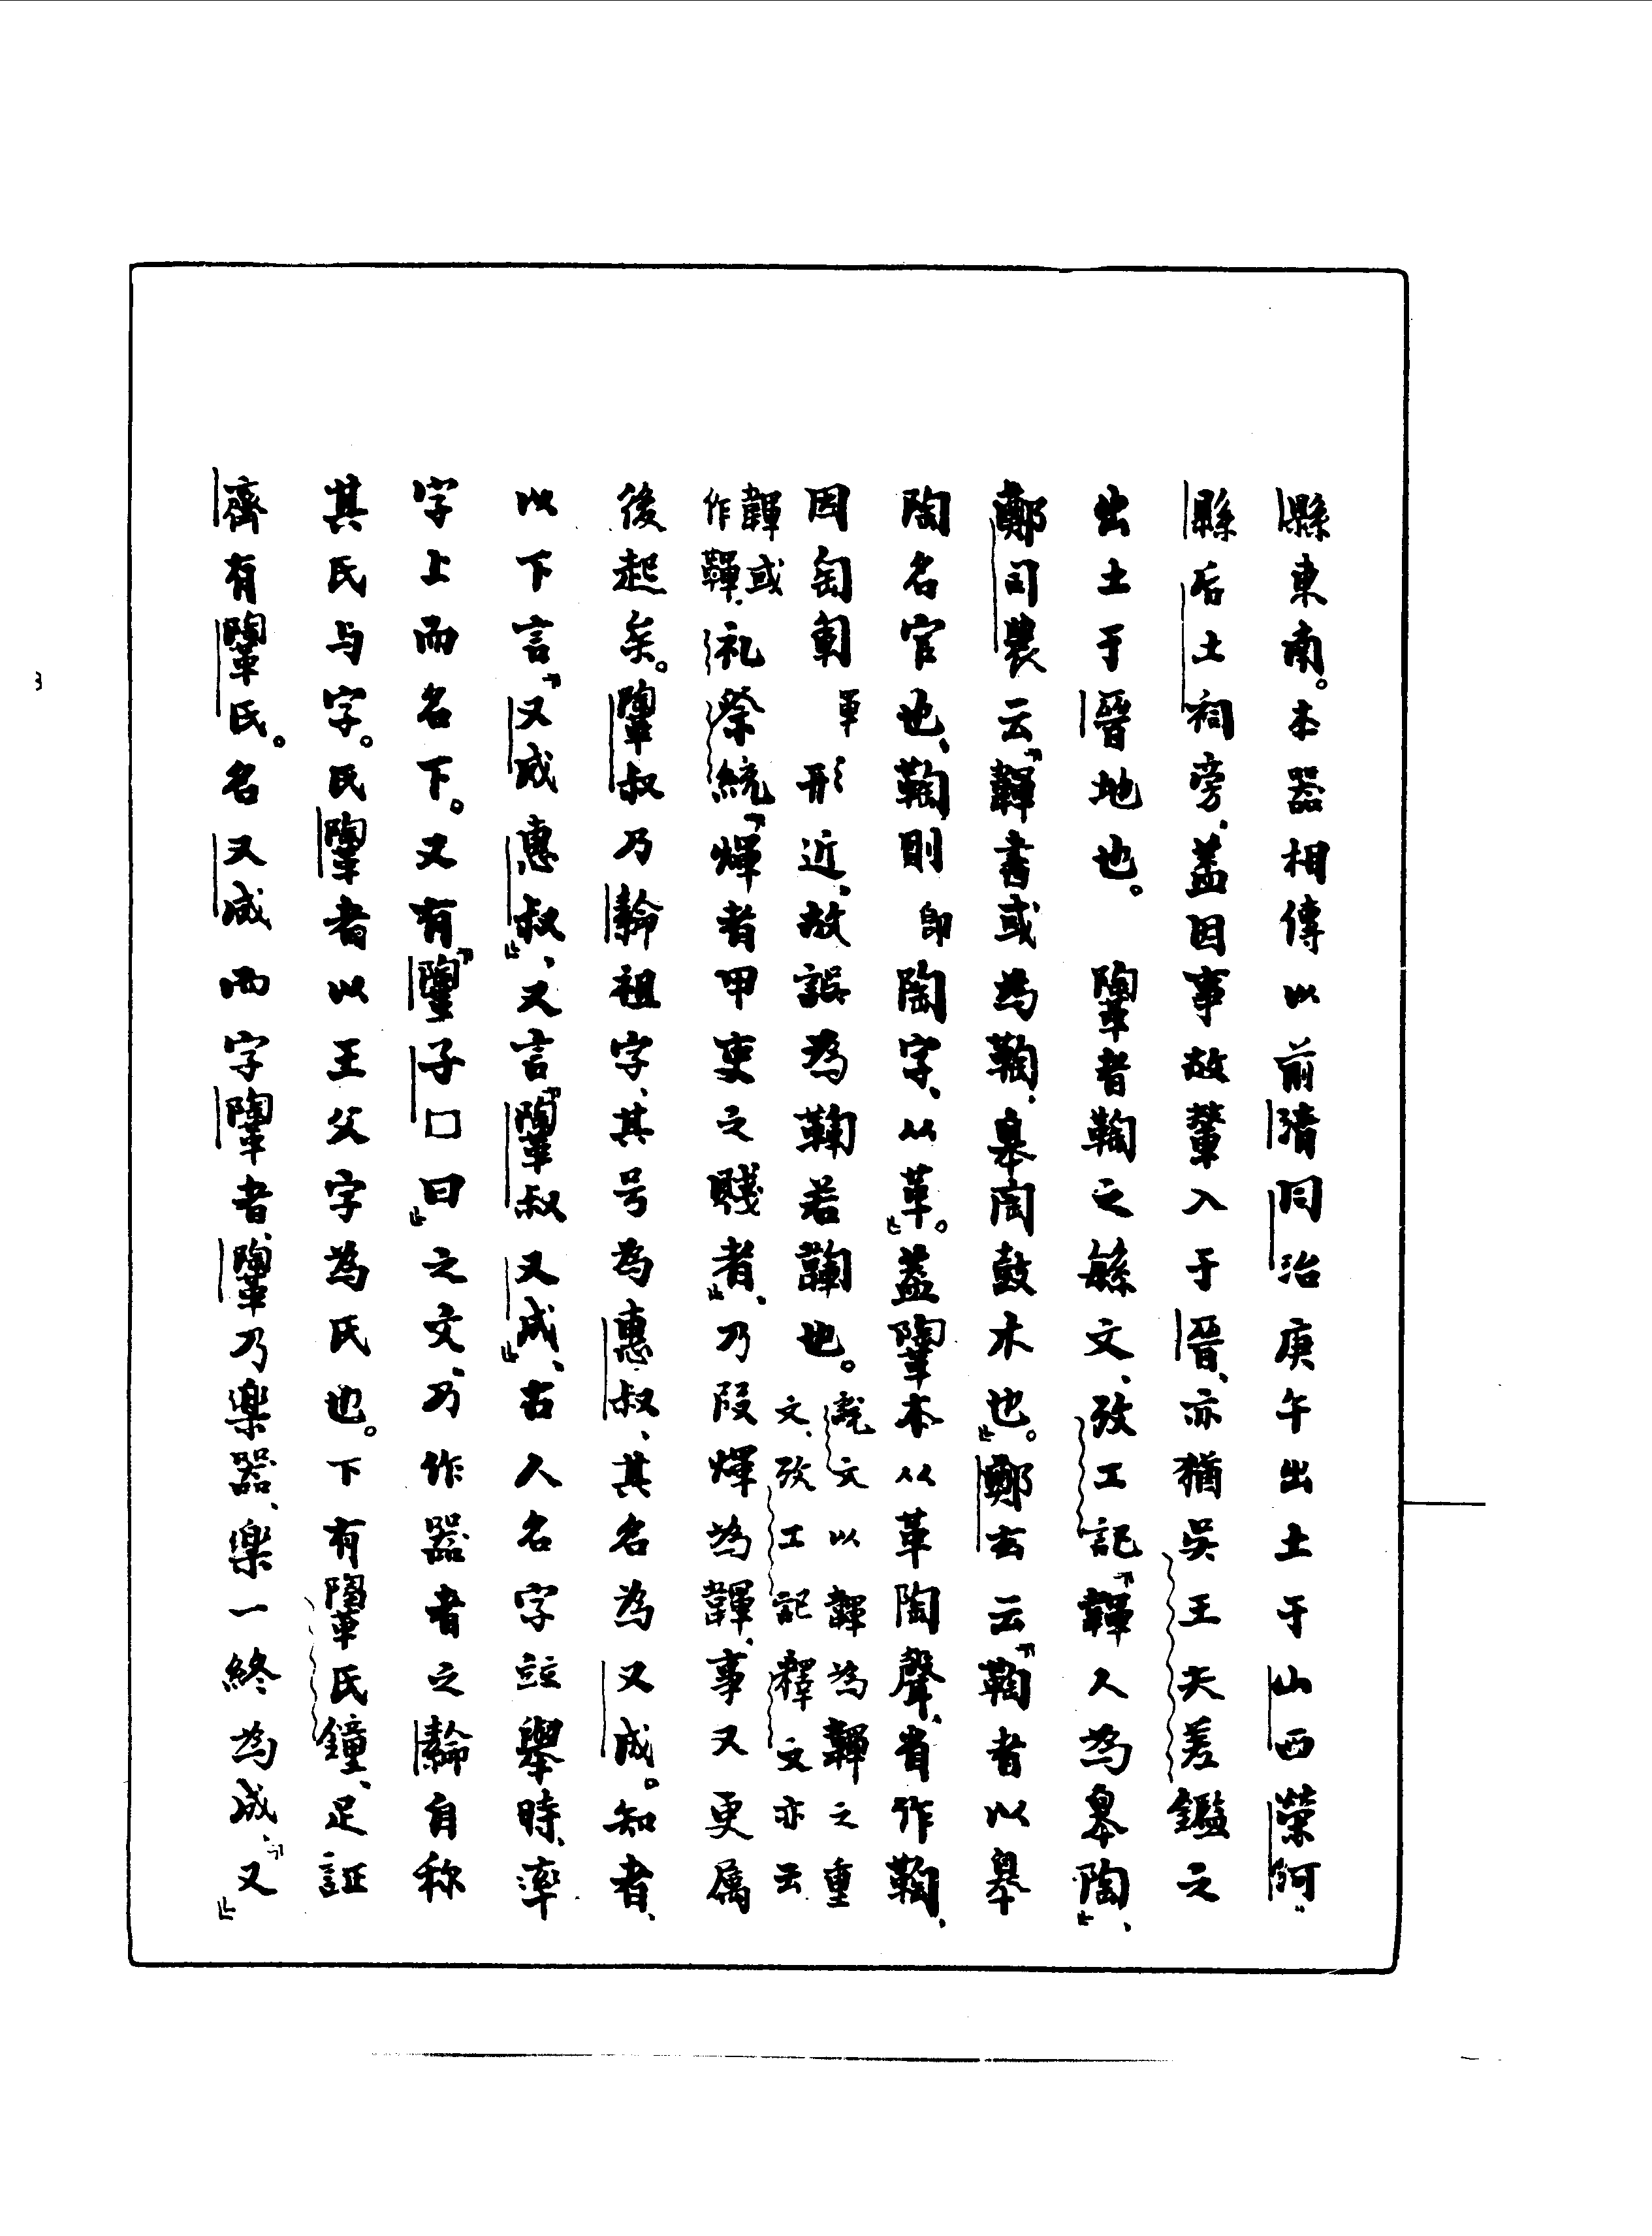 縣東南。本器相傳以前清同治庚午出土于山西榮河
縣后土祠旁、蓋因事故輦入于晉、亦猶吳王夫差鑑之
出土于晉地也。　者鞠之緐文、攷工記『韗人為皋陶』、
鄭司農云『韗書或為鞠、皋陶鼓木也』。鄭玄云『鞠者以皋
陶名官也、鞠則卽陶字、从革』。蓋本从革陶聲、省作鞠、
因匋軍形近、故誤為䩵若韗也。說文以韗為䩵之重
文、攷工記釋文亦云
韗或
作䩵、礼祭統『煇者甲吏之賤者』、乃叚煇為韗、事又更屬
後起矣。叔乃祖字、其号為惠叔、其名為又成。知者、
以下言『又成惠叔』、又言『叔又成』、古人名字竝舉時、率
字上而名下。又有『子□曰』之文、乃作器者之自称
其氏与字。氏者以王父字為氏也。下有氏鐘、足証
齊有氏。名又成而字者、乃樂器、樂一終為成、『又』